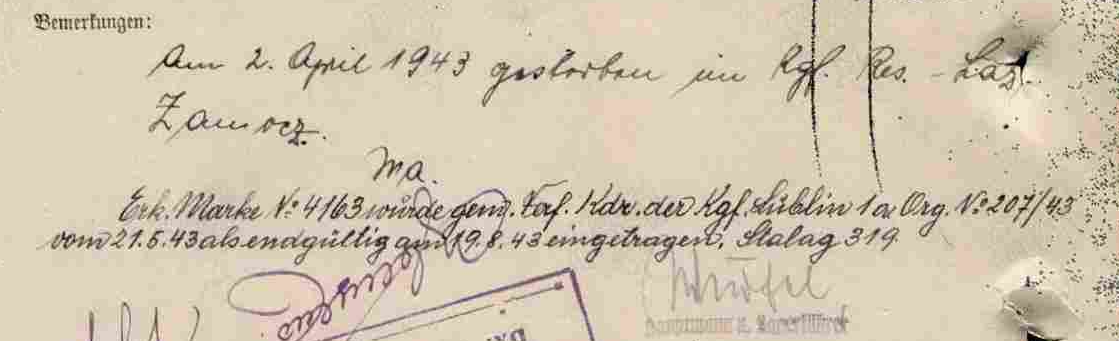 Bemerkungen:
Am 2. April 1943 gestorben im Kgf. Res. - Laz.
Zamocz.
Ma.
Erk. Marke № 4163 wurde gem. Verf. Kdr. der Kgf. Lublin 1a Org. № 207/43
vom 21.5.43 als endgültig am 19.8.43 eingetragen. Stalag 319
Hauptmann u. Lagerführer